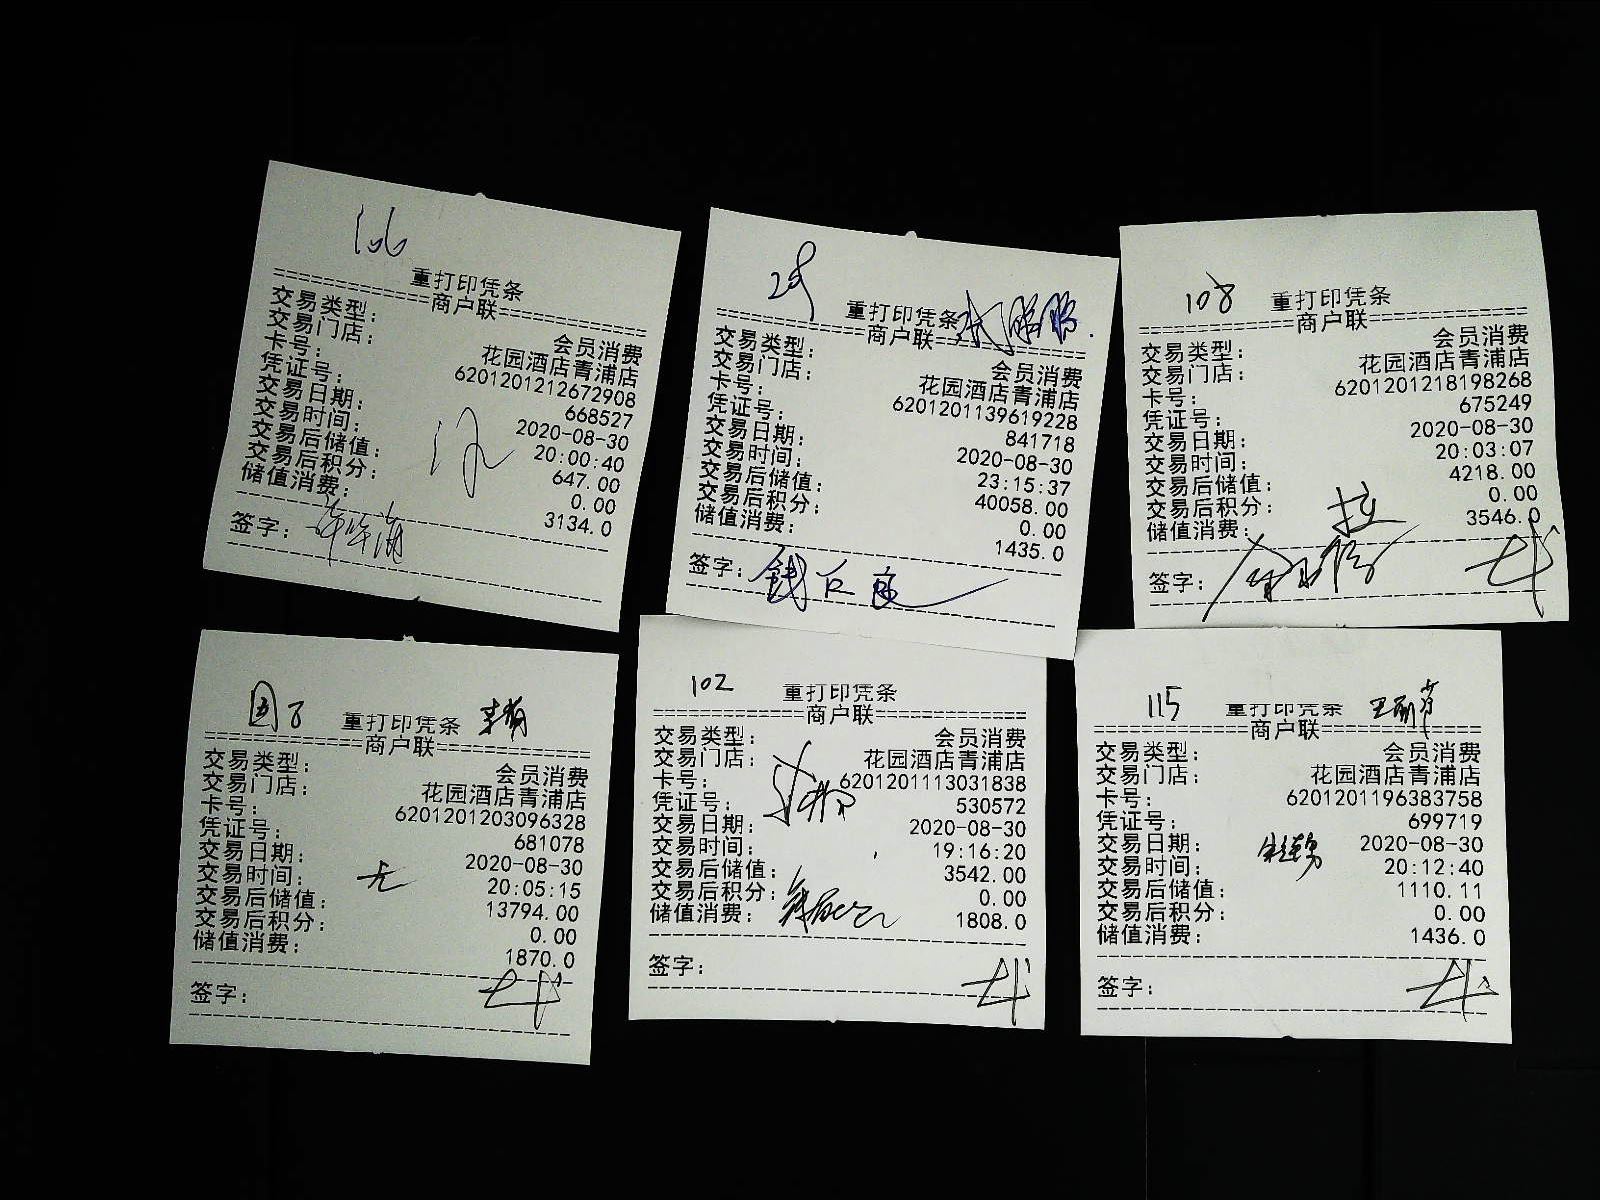 106
重打印凭条
商户联
交易类型: 会员消费
交易门店: 花园酒店青浦店
卡号: 6201201212672908
凭证号: 668527
交易日期: 2020-08-30
交易时间: 20:00:40
交易后储值: 647.00
交易后积分: 0.00
储值消费: 3134.0
签字:
重打印凭条
商户联
交易类型: 会员消费
交易门店: 花园酒店青浦店
卡号: 6201201139619228
凭证号: 841718
交易日期: 2020-08-30
交易时间: 23:15:37
交易后储值: 40058.00
交易后积分: 0.00
储值消费: 1435.0
签字:
108 重打印凭条
商户联
交易类型: 会员消费
交易门店: 花园酒店青浦店
卡号: 6201201218198268
凭证号: 675249
交易日期: 2020-08-30
交易时间: 20:03:07
交易后储值: 4218.00
交易后积分: 0.00
储值消费: 3546.0
签字:
重打印凭条
商户联
交易类型: 会员消费
交易门店: 花园酒店青浦店
卡号: 6201201203096328
凭证号: 681078
交易日期: 2020-08-30
交易时间: 20:05:15
交易后储值: 13794.00
交易后积分: 0.00
储值消费: 1870.0
签字:
102 重打印凭条
商户联
交易类型: 会员消费
交易门店: 花园酒店青浦店
卡号: 6201201113031838
凭证号: 530572
交易日期: 2020-08-30
交易时间: 19:16:20
交易后储值: 3542.00
交易后积分: 0.00
储值消费: 1808.0
签字:
115 重打印凭条
商户联
交易类型: 会员消费
交易门店: 花园酒店青浦店
卡号: 6201201196383758
凭证号: 699719
交易日期: 2020-08-30
交易时间: 20:12:40
交易后储值: 1110.11
交易后积分: 0.00
储值消费: 1436.0
签字: